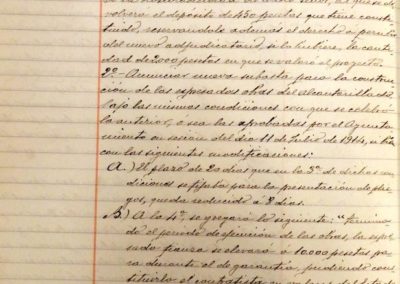 volverá el depósito de 450 pesetas que tiene consti-
tuido, reservándole además el derecho á percibir
del nuevo adjudicatario, si lo hubiere, la canti-
dad de 2000 pesetas en que se valora el proyecto
2º- Anunciar nueva subasta para la construc-
ción de las expresadas obras del alcantarillado
bajo las mismas condiciones con que se celebró
la anterior, ó sea las aprobadas por el Ayunta-
miento en sesión del día 11 de Julio de 1914,
con las siguientes modificaciones:
A.) El plazo de 20 días que en la 3ª de dichas con-
diciones se fijaba para la presentación de plie-
gos, queda reducido á 8 días.
B.) A la 4ª se agregará lo siguiente: "Termina-
do el período de ejecución de las obras, la expre-
sada fianza se elevará á 10.000 pesetas pa-
ra durante el de garantía, pudiendo cons-
tituirlo el contratista